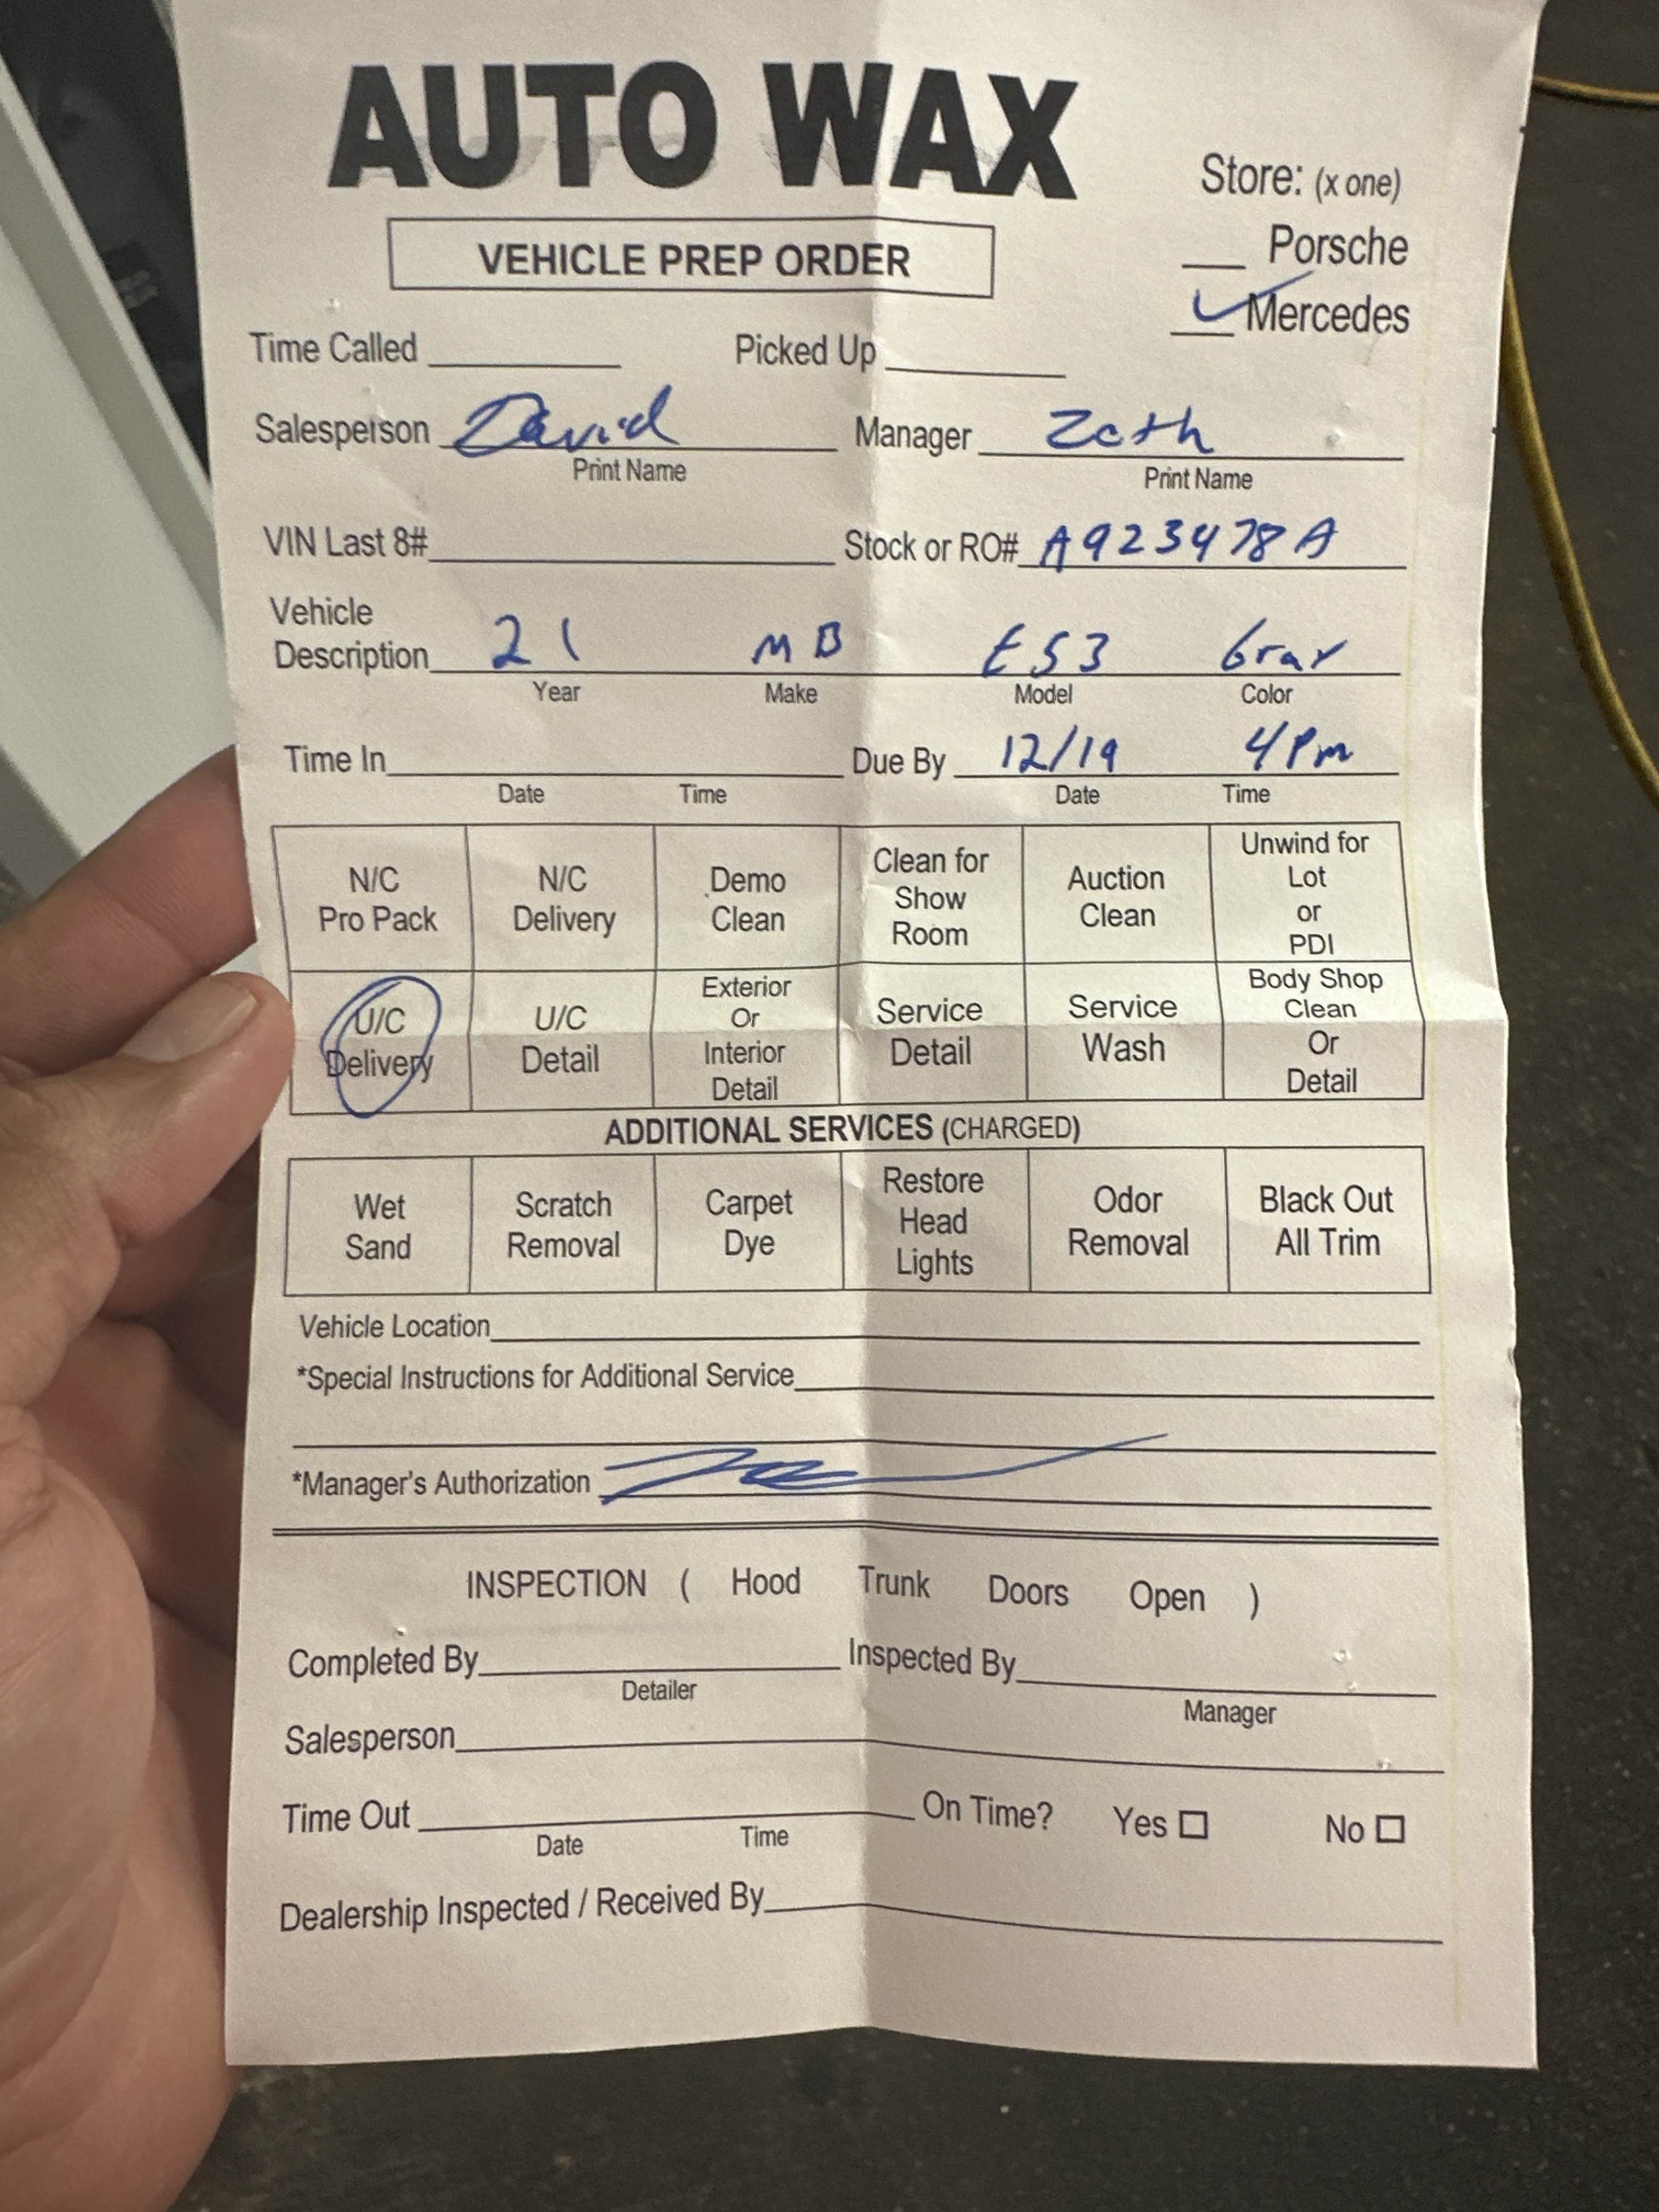 AUTO WAX
Store: (x one)
VEHICLE PREP ORDER
Porsche
✓ Mercedes
Time Called Picked Up
Salesperson David Manager Zoth
Print Name Print Name
VIN Last 8# Stock or RO# A923478A
Vehicle
Description 21 MB E53 Gray
Year Make Model Color
Time In Due By 12/19 4Pm
Date Time Date Time
N/C Pro Pack
N/C Delivery
Demo Clean
Clean for Show Room
Auction Clean
Unwind for Lot or PDI
U/C Delivery
U/C Detail
Exterior Or Interior Detail
Service Detail
Service Wash
Body Shop Clean Or Detail
ADDITIONAL SERVICES (CHARGED)
Wet Sand
Scratch Removal
Carpet Dye
Restore Head Lights
Odor Removal
Black Out All Trim
Vehicle Location
*Special Instructions for Additional Service
*Manager's Authorization
INSPECTION ( Hood Trunk Doors Open )
Completed By Inspected By
Detailer Manager
Salesperson
Time Out On Time? Yes No
Date Time
Dealership Inspected / Received By